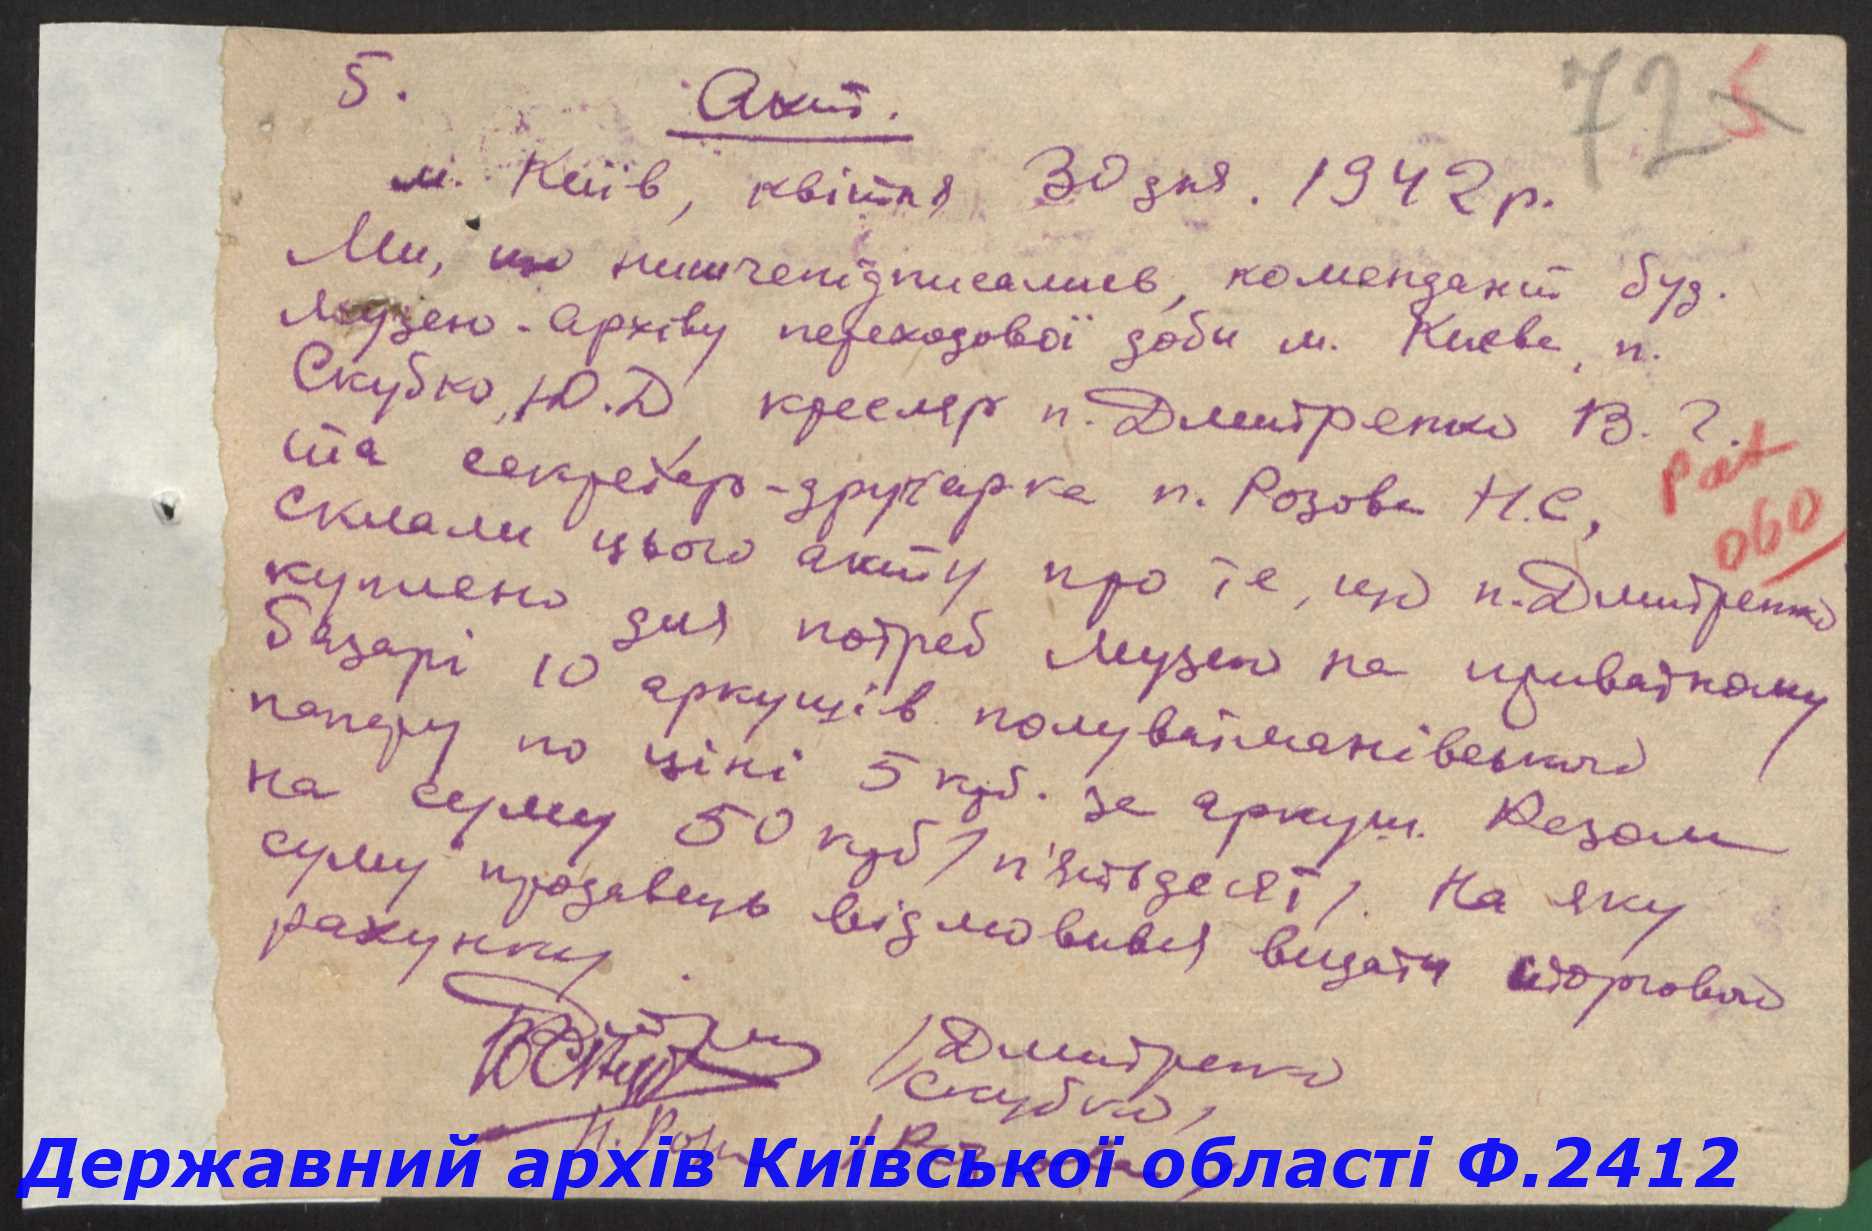 5.
72 5
Акт.
м. Київ, квітня 30 дня. 1942 р.
Ми, що нижчепідписались, комендант буд.
Музею-архіву переходової доби м. Києва, п.
Скубко, Ю.Д, кресляр п. Дмитренко В. Г.
та секретар-друкарка п. Розова Н.С,
склали цього акту про те, що п. Дмитренко
куплено для потреб Музею на приватному
базарі 10 аркушів полуватманівського
паперу по ціні 5 крб. за аркуш. Разом
на суму 50 крб / п'ятьдесят /. На яку
суму продавець відмовився видати торгового
рахунку.
/ Дмитренко
Скубко /
Н. Роз / Розова /
Державний архів Київської області Ф.2412